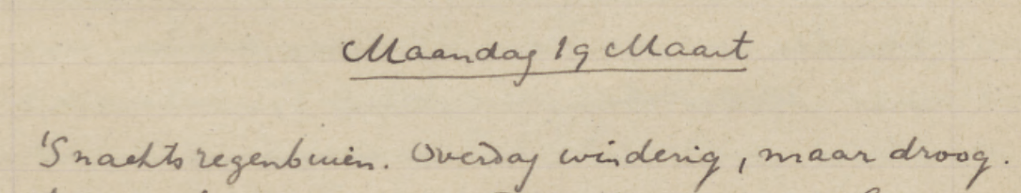 Maandag 19 Maart
'S nachts regenbuien. Overdag winderig, maar droog.